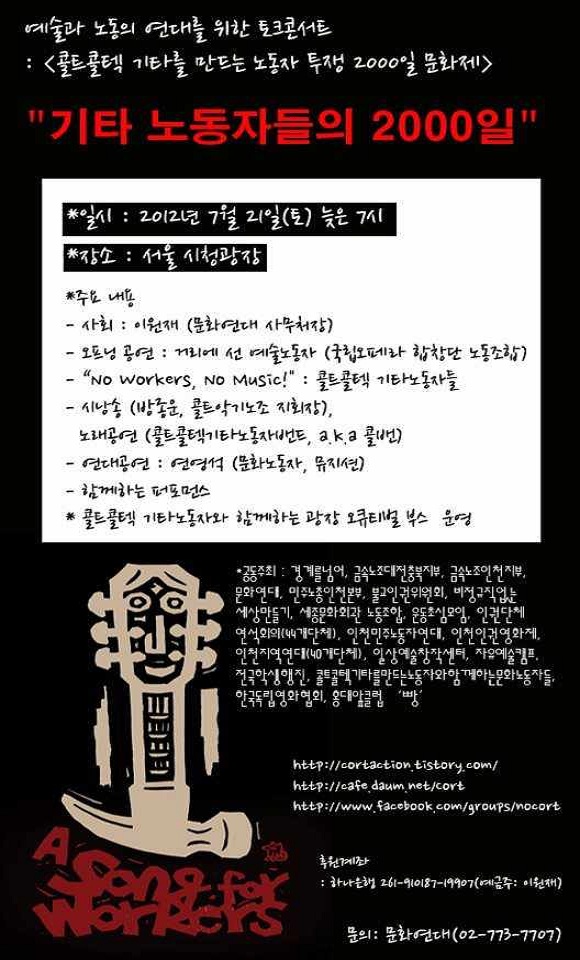 예술과 노동의 연대를 위한 토크콘서트
: <콜트콜텍 기타를 만드는 노동자 투쟁 2000일 문화제>
"기타 노동자들의 2000일"
*일시 : 2012년 7월 21일(토) 늦은 7시
*장소 : 서울 시청광장
*주요 내용
- 사회 : 이원재 (문화연대 사무처장)
- 오프닝 공연 : 거리에 선 예술노동자 (국립오페라 합창단 노동조합)
- "No Workers, No Music!" : 콜트콜텍 기타노동자들
- 시낭송 (방종운, 콜트악기노조 지회장),
노래공연 (콜트콜텍기타노동자밴드, a.k.a 콜밴)
- 연대공연 : 연영석 (문화노동자, 뮤지션)
- 함께하는 퍼포먼스
* 콜트콜텍 기타노동자와 함께하는 광장 오큐티벌 부스 운영
*공동주최 : 경계를넘어, 금속노조대전충북지부, 금속노조인천지부,
문화연대, 민주노총인천본부, 불교인권위원회, 비정규직없는
세상만들기, 세종문화회관 노동조합, 운동초심모임, 인권단체
연석회의(44개단체), 인천민주노동자연대, 인천인권영화제,
인천지역연대(40개단체), 일상예술창작센터, 자유예술캠프,
전국학생행진, 콜트콜텍기타를만드는노동자와함께하는문화노동자들,
한국독립영화협회, 홍대앞클럽 '빵'
http://cortaction.tistory.com/
http://cafe.daum.net/cort
http://www.facebook.com/groups/nocort
A
Song for
Workers
후원계좌
: 하나은행 261-910187-19907(예금주: 이원재)
문의: 문화연대(02-773-7707)